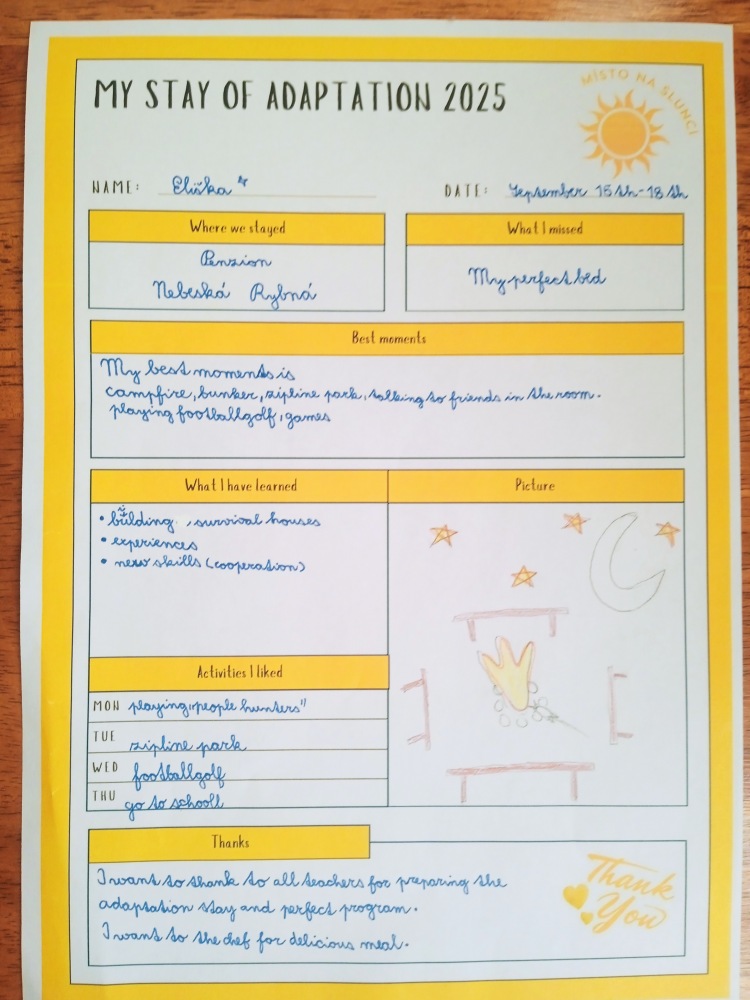 MY STAY OF ADAPTATION 2025
MÍSTO NA SLUNCI
NAME: Eliška
DATE: September 15th-18th
Where we stayed
Penzion
Nebeská Rybná
What I missed
My perfect bed
Best moments
My best moments is
campfire, bunker, zipline park, talking to friends in the room.
playing footballgolf, games
What I have learned
• building, survival houses
• experiences
• new skills (cooperation)
Picture
Activities I liked
MON playing „people hunters"
TUE zipline park
WED footballgolf
THU go to schooll
Thanks
I want to thank to all teachers for preparing the
adaptation stay and perfect program.
I want to the chef for delicious meal.
Thank
You